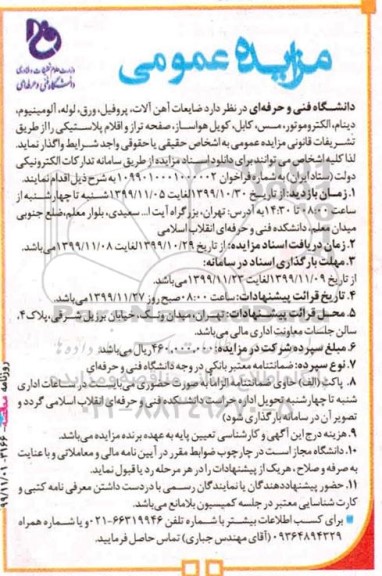 وزارت علوم تحقیقات و فناوری
دانشگاه فنی و حرفه‌ای
مزایده عمومی
دانشگاه فنی و حرفه‌ای در نظر دارد ضایعات آهن آلات، پروفیل، ورق، لوله، آلومینیوم،
دینام، الکتروموتور، مس، کابل، کویل هواساز، صفحه تراز و اقلام پلاستیکی را از طریق
تشریفات قانونی مزایده عمومی به اشخاص حقیقی یا حقوقی واجد شرایط واگذار نماید.
لذا کلیه اشخاص می توانند برای دانلود اسناد مزایده از طریق سامانه تدارکات الکترونیکی
دولت (ستاد ایران) به شماره فراخوان ۱۰۹۹۰۱۰۰۰۱۰۰۰۰۰۲ به شرح ذیل اقدام نمایند.
۱. زمان بازدید: از تاریخ ۱۳۹۹/۱۰/۳۰ لغایت ۱۳۹۹/۱۱/۰۵ شنبه تا چهارشنبه از
ساعت ۰۸:۰۰ تا ۱۴:۳۰ به آدرس: تهران، بزرگراه آیت ا... سعیدی، بلوار معلم، ضلع جنوبی
میدان معلم، دانشکده فنی و حرفه‌ای انقلاب اسلامی
۲. زمان دریافت اسناد مزایده: از تاریخ ۱۳۹۹/۱۰/۲۹ لغایت ۱۳۹۹/۱۱/۰۸ می‌باشد.
۳. مهلت بارگذاری اسناد در سامانه:
از تاریخ ۱۳۹۹/۱۱/۰۹ لغایت ۱۳۹۹/۱۱/۲۳ می‌باشد.
۴. تاریخ قرائت پیشنهادات: ساعت ۰۸:۰۰ صبح روز ۱۳۹۹/۱۱/۲۷ می‌باشد.
۵. محل قرائت پیشنهادات: تهران، میدان ونک، خیابان برزیل شرقی، پلاک ۴،
سالن جلسات معاونت اداری مالی می‌باشد.
۶. مبلغ سپرده شرکت در مزایده: ۴۶۰.۰۰۰.۰۰۰ ریال می‌باشد.
۷. نوع سپرده: ضمانتنامه معتبر بانکی در وجه دانشگاه فنی و حرفه‌ای
۸. پاکت (الف) حاوی ضمانتنامه الزاما به صورت حضوری می‌بایست در ساعات اداری
شنبه تا چهارشنبه تحویل اداره حراست دانشکده فنی و حرفه‌ای انقلاب اسلامی گردد و
تصویر آن در سامانه بارگذاری شود)
۹. هزینه درج این آگهی و کارشناسی تعیین پایه به عهده برنده مزایده می‌باشد.
۱۰. دانشگاه مجاز است در چارچوب ضوابط مقرر در آیین نامه مالی و معاملاتی و با عنایت
به صرفه و صلاح، هریک از پیشنهادات را در هر مرحله رد یا قبول نماید.
۱۱. حضور پیشنهاددهندگان یا نمایندگان رسمی با در دست داشتن معرفی نامه کتبی و
کارت شناسایی معتبر در جلسه کمیسیون بلامانع می‌باشد.
برای کسب اطلاعات بیشتر با شماره تلفن ۶۶۳۱۹۹۴۶-۰۲۱ و یا شماره همراه
۰۹۳۶۴۸۹۴۳۲۹ (آقای مهندس جباری) تماس حاصل فرمایید.